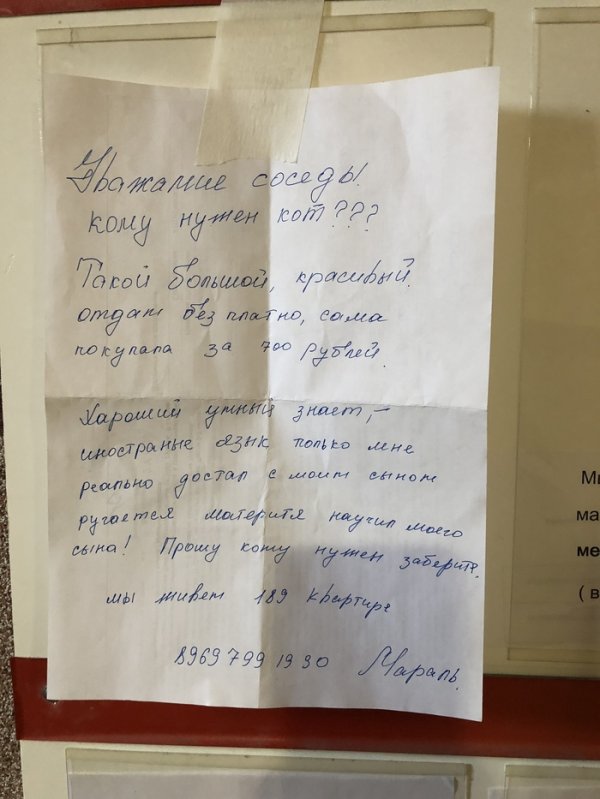 Уважамие соседы.
кому нужен кот???
Такой большой, красивый.
отдам без платно, сама
покупала за 700 рублей.
Хароший умный знает, –
иностраные язык только мне
реально достал с моим сыном
ругается материтя научил моего
сына! Прошу кому нужен заберите.
мы живем 189 квартире
8969 799 19 30 Мараль.
Ми
ма
ме
( в